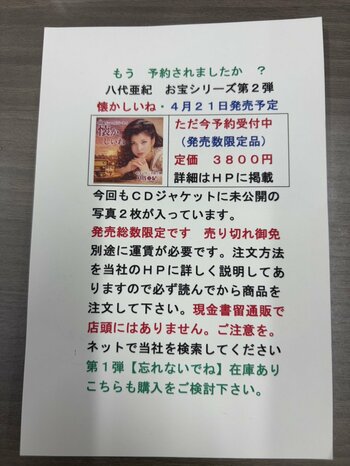 もう　予約されましたか　？
八代亜紀　お宝シリーズ第２弾
懐かしいね・４月２１日発売予定
ただ今予約受付中
（発売数限定品）
定価　３８００円
詳細はＨＰに掲載
今回もＣＤジャケットに未公開の
写真２枚が入っています。
発売総数限定です　売り切れ御免
別途に運賃が必要です。注文方法
を当社のＨＰに詳しく説明してあ
りますので必ず読んでから商品を
注文して下さい。現金書留通販で
店頭にはありません。ご注意を。
ネットで当社を検索してください
第１弾【忘れないでね】在庫あり
こちらも購入をご検討下さい。